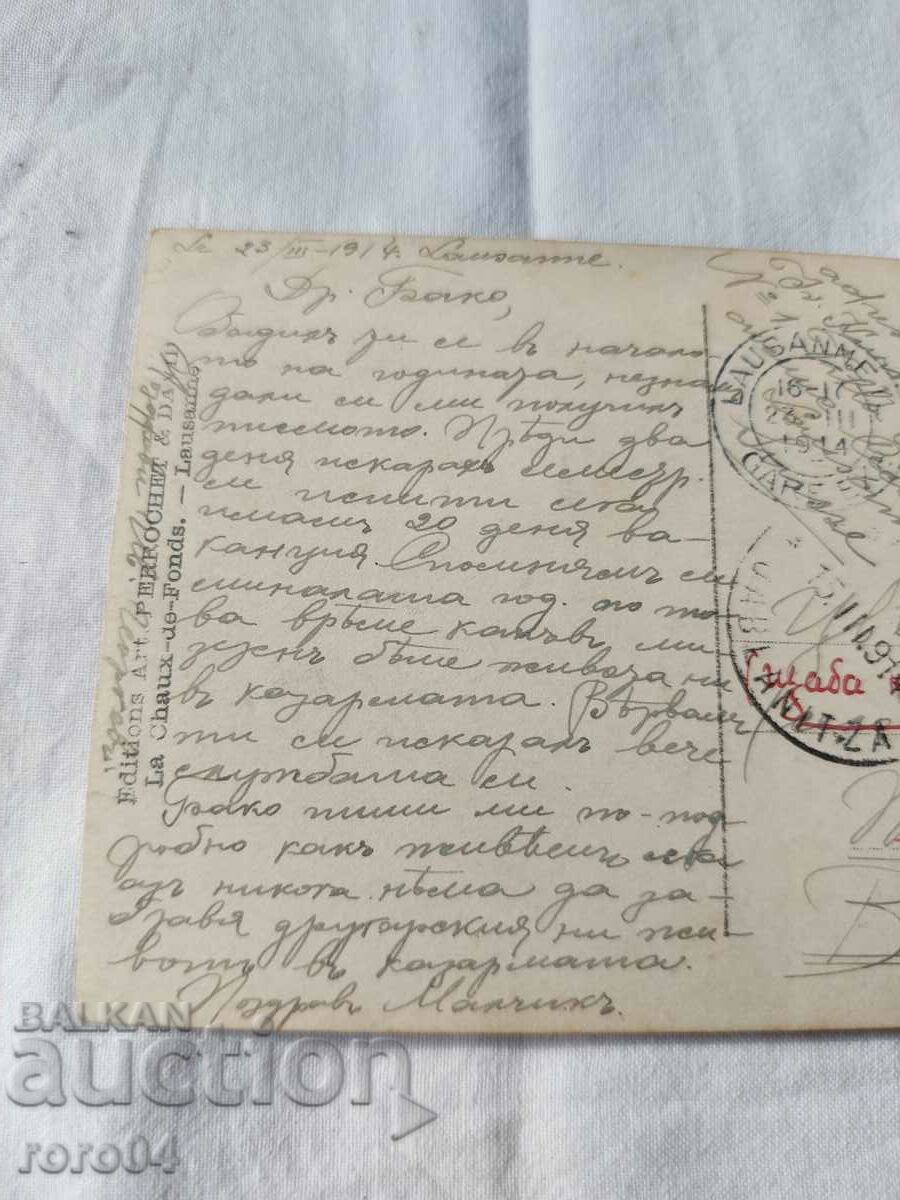 23/III-1914. Lausanne.
Др. Бако,
Обадихъ ти се въ начало-
то на годината, незна
дали си ми получилъ
писмото. Прѣди два
деня искарахъ семестр.
си испити сега
имамъ 20 деня ва-
канция. Спомнямъ си
миналата год. по то-
ва врѣме какъвъ ми-
зеренъ бѣше живота ни
въ казармата. Вѣрвамъ
ти си искаралъ вече
службата си.
Бако пиши ми по-под
робно какъ живѣешъ сега
азъ никога нѣма да за-
бравя другарския ни жи-
вотъ въ казармата.
Поздравъ Манчикъ.
Editions Art. PERROCHET & DAVID
La Chaux-de-Fonds. — Lausanne
LAUSANNE
16-17
23 III
14
GARE
GABRANITZA
щаба
BALKAN
auction
roro04